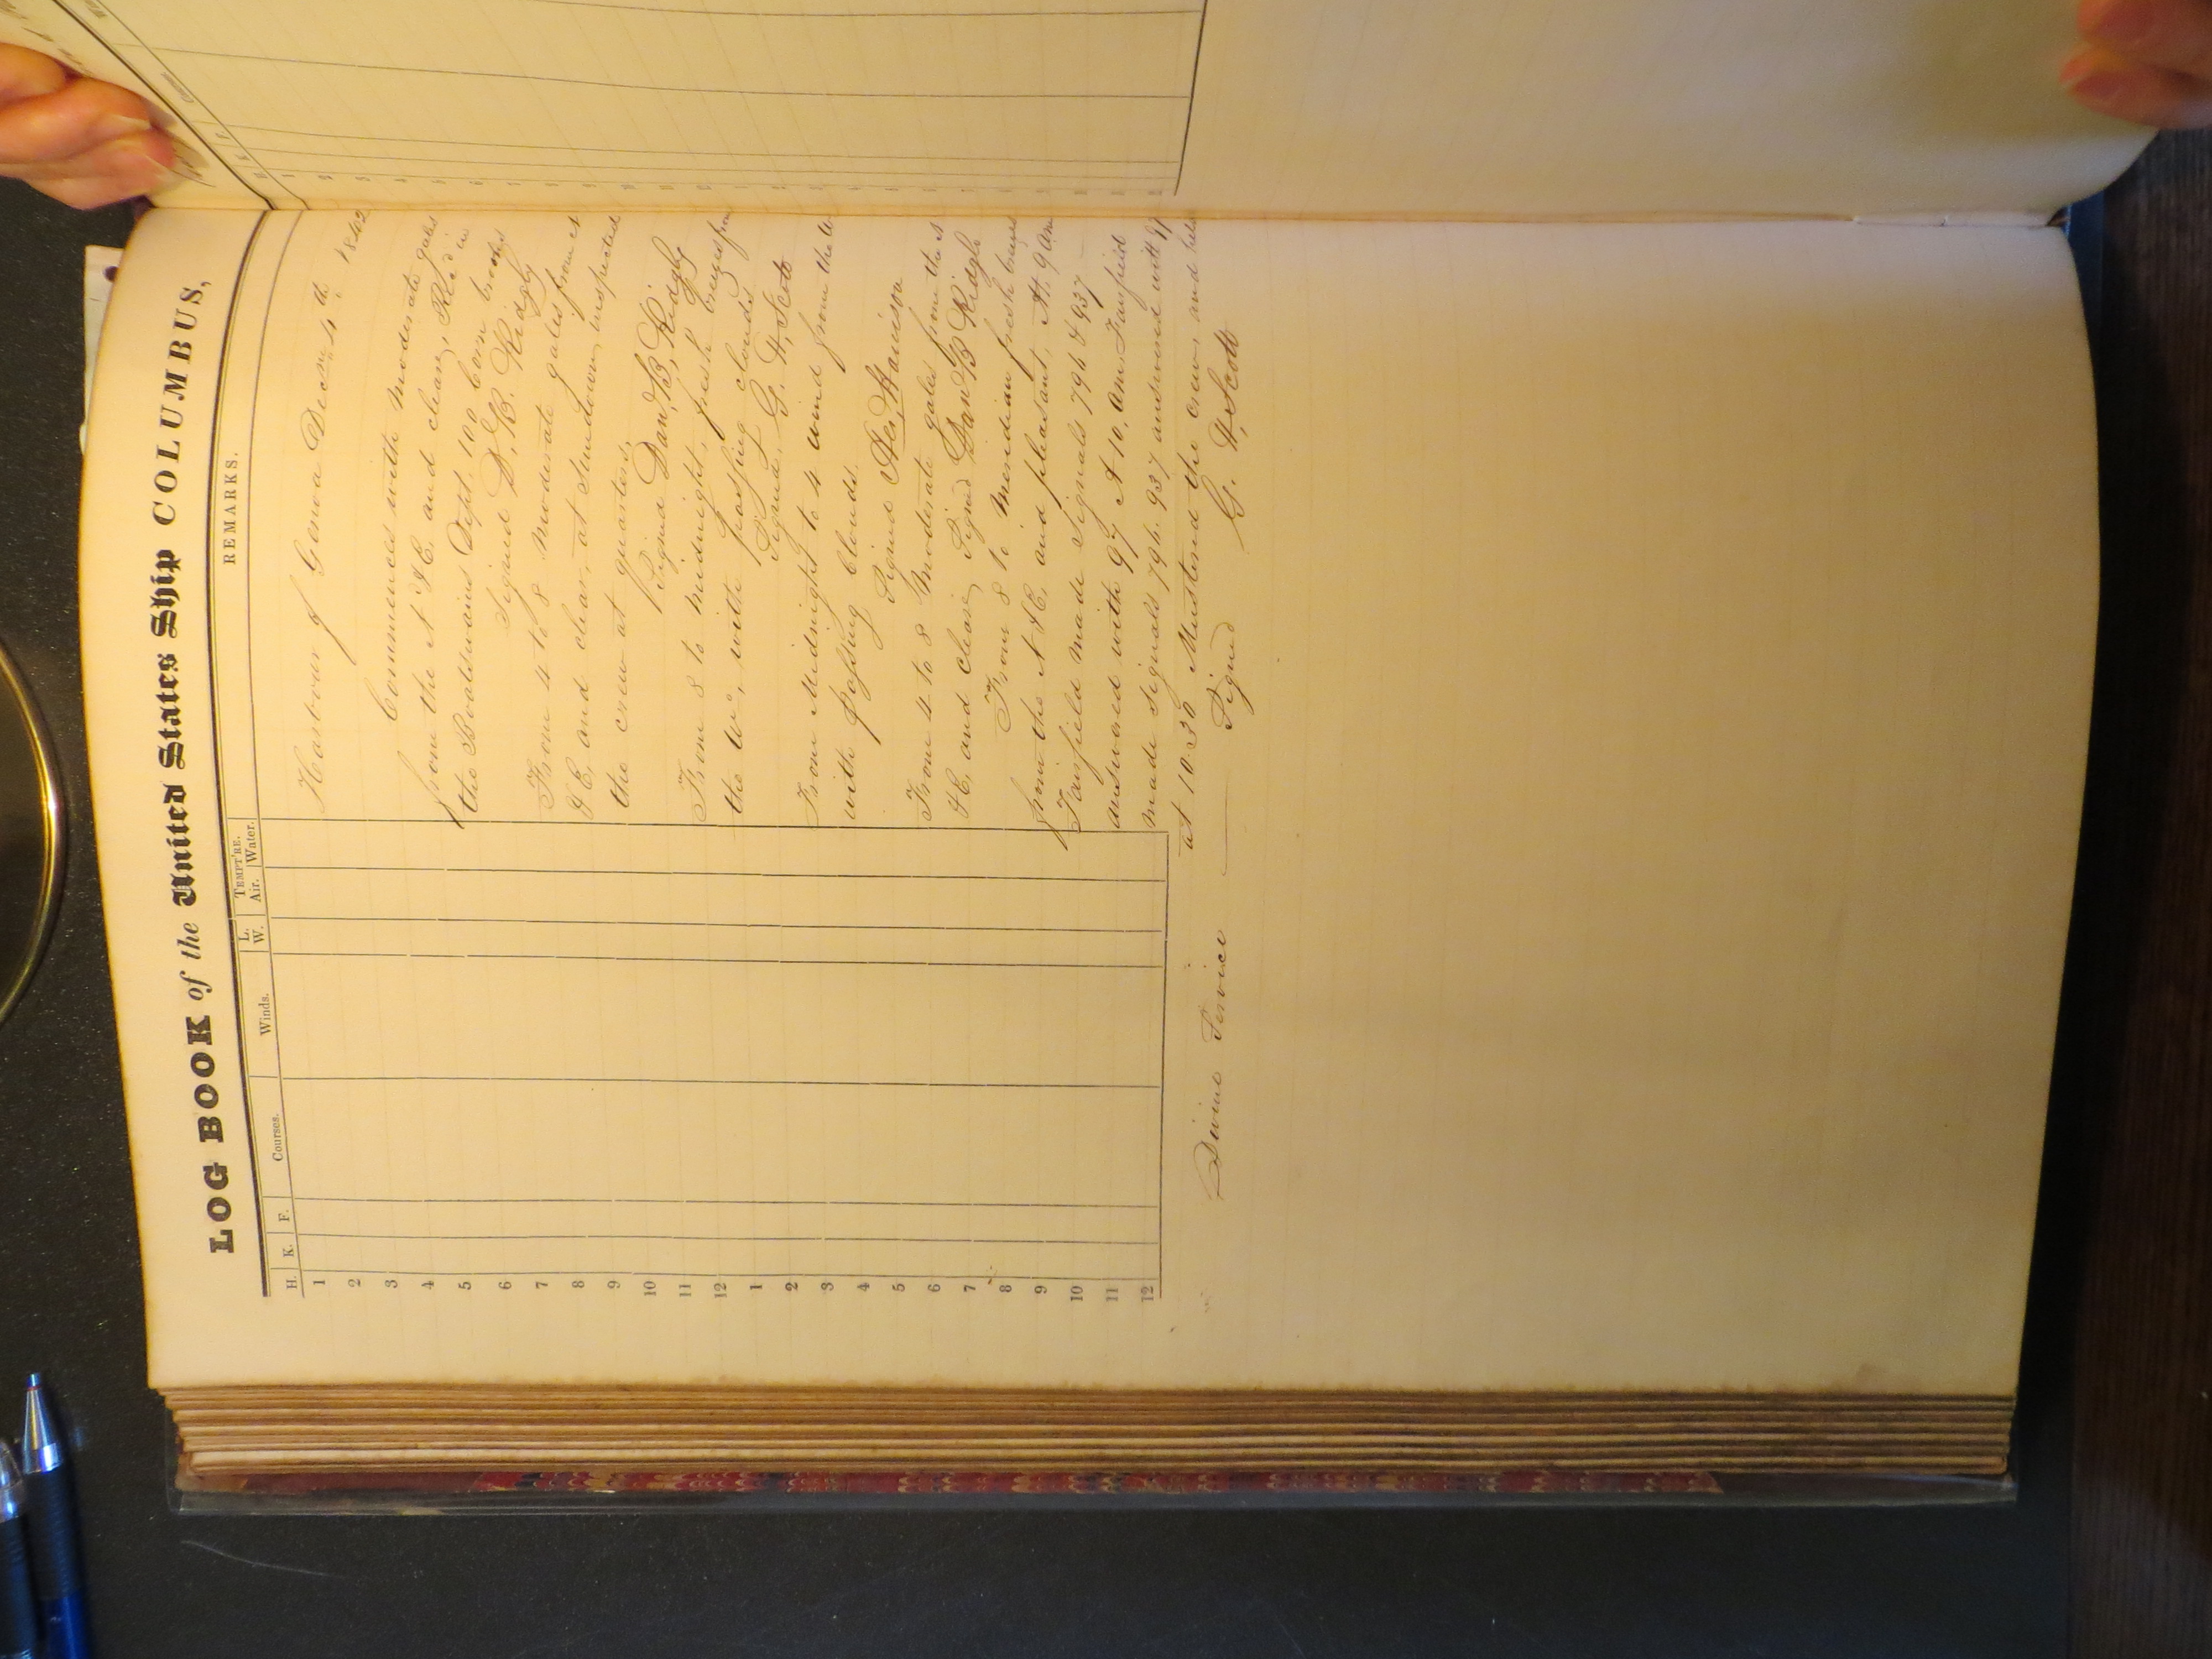 LOG BOOK of the United States Ship COLUMBUS,
H. K. F. Courses. Winds. L. W. TEMPT'RE. Air. Water. REMARKS.
1
2
3
4
5
6
7
8
9
10
11
12
1
2
3
4
5
6
7
8
9
10
11
12
Harbour of Genoa Decm 4th 1842
Commences with moderate gales
from the N & E. and clear, Rec'd in
the Boatswains Dept. 100 Corn brooms
Signed D. B. Ridgly
From 4 to 8 moderate gales from N
& E, and clear, at Sundown, inspected
the crew at quarters,
Signed Dan, B, Ridgly
From 8 to midnight, fresh breezes from
the with passing clouds
Signed, G. H, Scott
From Midnight to 4 wind from the
with passing clouds.
Signed Harrison
From 4 to 8 Moderate gales from the N
& E, and clear, Signed Dan B Ridgly
From 8 to Meridian fresh breezes
from the N & E, and pleasant, At 9 am
Fairfield made signals 794 & 937
answered with 97 At 10, am, Fairfield
made signals 794. 937 answered with 97
at 10.30 Mustered the crew, and held
Divine Service Signed G. H, Scott